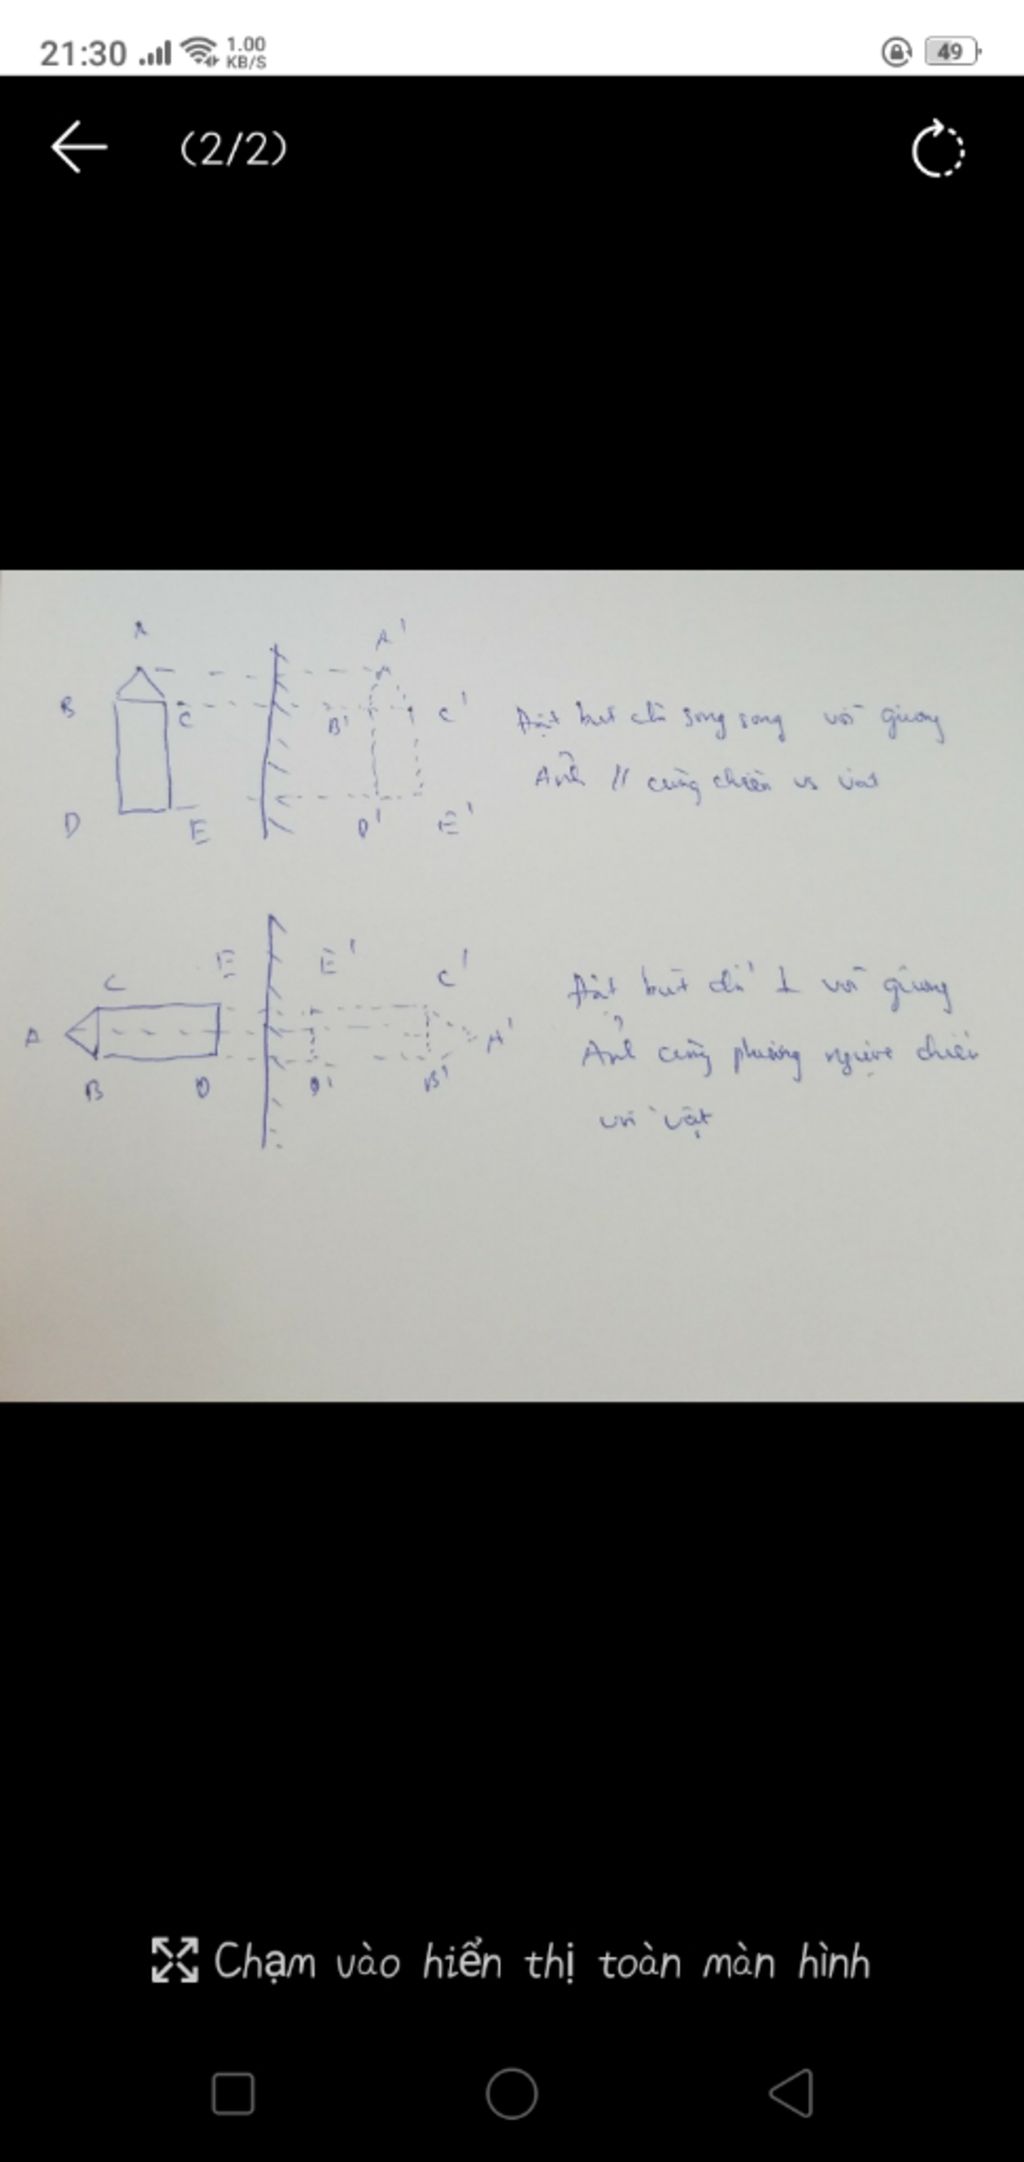 21:30
1.00
KB/S
49
(2/2)
A
A'
B
C
B'
C'
Đặt bút chì song song với gương
Ảnh // cùng chiều vs vật
D
E
D'
E'
E
E'
C
C'
Đặt bút chì ⊥ với gương
A
A'
Ảnh cùng phương ngược chiều
B
D
D'
B'
với vật
Chạm vào hiển thị toàn màn hình